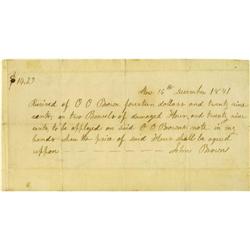 $14.29
16th December 1841
Received of O O Brown fourteen dollars and twenty nine
cents, on two Barrels of damaged Flour, and twenty nine
cents to be applyed on said O O Browns note in my
hands when the price of said Flour shall be agreed
uppon
John Brown